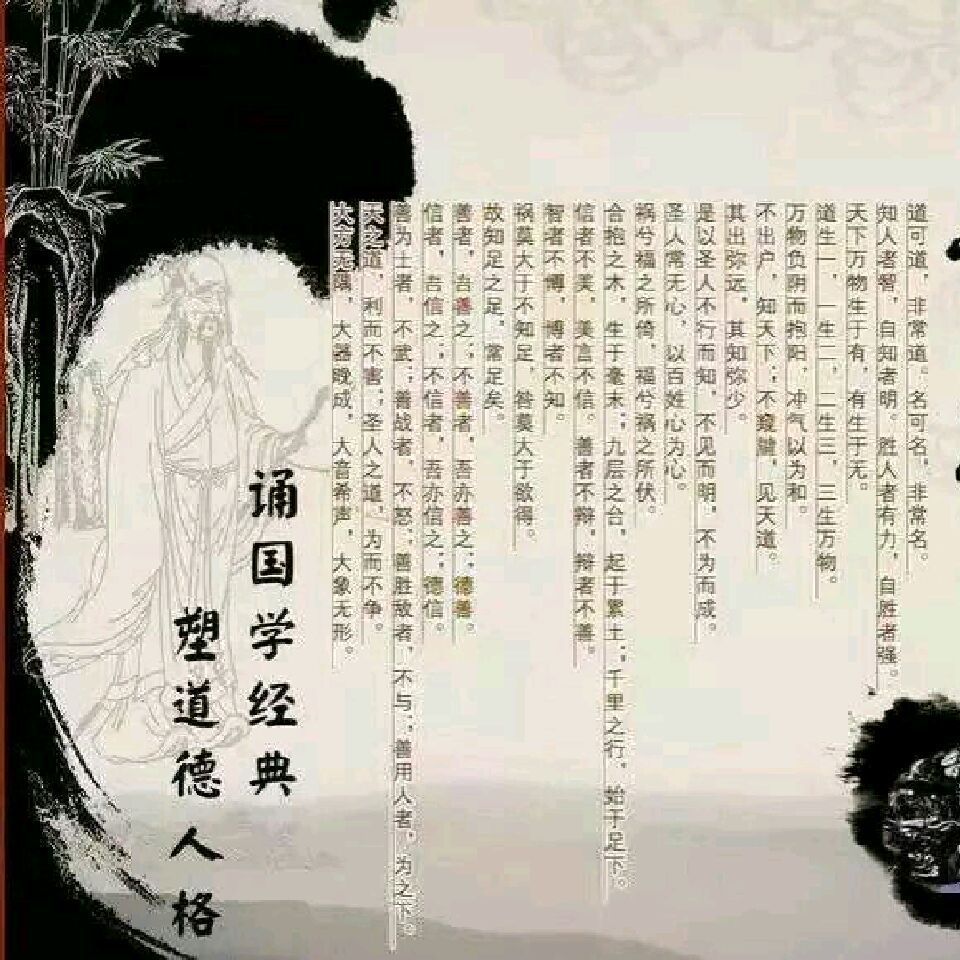 道可道，非常道。名可名，非常名。
知人者智，自知者明。胜人者有力，自胜者强。
天下万物生于有，有生于无。
道生一，一生二，二生三，三生万物。
万物负阴而抱阳，冲气以为和。
不出户，知天下；不窥牖，见天道。
其出弥远，其知弥少。
是以圣人不行而知，不见而明，不为而成。
圣人常无心，以百姓心为心。
祸兮福之所倚，福兮祸之所伏。
合抱之木，生于毫末；九层之台，起于累土；千里之行，始于足下。
信者不美，美言不信。善者不辩，辩者不善。
智者不博，博者不知。
祸莫大于不知足，咎莫大于欲得。
故知足之足，常足矣。
善者，吾善之；不善者，吾亦善之；德善。
信者，吾信之；不信者，吾亦信之；德信。
善为士者，不武；善战者，不怒；善胜敌者，不与；善用人者，为之下。
天之道，利而不害；圣人之道，为而不争。
大方无隅，大器晚成，大音希声，大象无形。
诵国学经典
塑道德人格